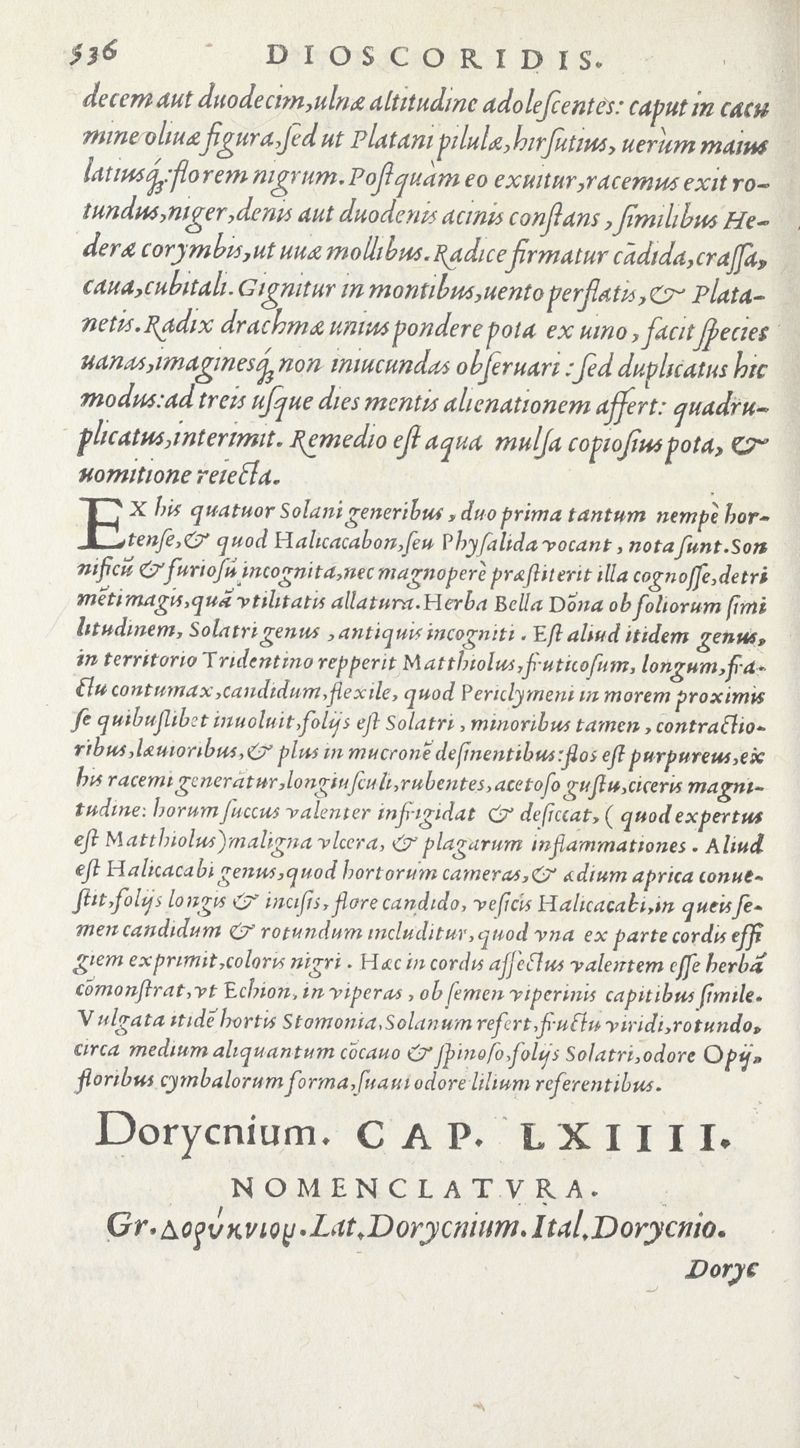 536 DIOSCORIDIS.
decem aut duodecim, ulnæ altitudine adoleſcentes: caput in cacu
mine oliuæ figura, ſed ut Platani pilulæ, hirſutius, uerùm maius
latiusq́₃: florem nigrum. Poſtquàm eo exuitur, racemus exit ro-
tundus, niger, denis aut duodenis acinis conſtans, ſimilibus He-
deræ corymbis, ut uuæ mollibus. Radice firmatur cādida, craſſa,
caua, cubitali. Gignitur in montibus, uento perflatis, & Plata-
netis. Radix drachmæ unius pondere pota ex uino, facit ſpecies
uanas, imaginesq́₃ non iniucundas obſeruari: ſed duplicatus hic
modus: ad treis uſque dies mentis alienationem affert: quadru-
plicatus, interimit. Remedio eſt aqua mulſa copioſius pota, &
uomitione reiecta.
EX his quatuor Solani generibus, duo prima tantum nempè hor-
tenſe, & quod Halicacabon, ſeu Phyſalida vocant, nota ſunt. Som
nificū & furioſū incognita, nec magnoperè præſtiterit illa cognoſſe, detri
mēti magis, quā vtilitatis allatura. Herba Bella Dōna ob foliorum ſimi
litudinem, Solatri genus, antiquis incogniti. Eſt aliud itidem genus,
in territorio Tridentino repperit Matthiolus, fruticoſum, longum, fra-
ctu contumax, candidum, flexile, quod Periclymeni in morem proximis
ſe quibuſlibet inuoluit, folijs eſt Solatri, minoribus tamen, contractio-
ribus, læuioribus, & plus in mucronē deſinentibus: flos eſt purpureus, ex
his racemi generātur, longiuſculi, rubentes, acetoſo guſtu, ciceris magni-
tudine: horum ſuccus valenter infrigidat & deſiccat, (quod expertus
eſt Matthiolus) maligna vlcera, & plagarum inflammationes. Aliud
eſt Halicacabi genus, quod hortorum cameras, & ædium aprica conue-
ſtit, folijs longis & inciſis, flore candido, veſicis Halicacabi, in queis ſe-
men candidum & rotundum includitur, quod vna ex parte cordis effi
giem exprimit, coloris nigri. Hæc in cordis affectus valentem eſſe herbā
cōmonſtrat, vt Echion, in viperas, ob ſemen viperinis capitibus ſimile.
Vulgata itidē hortis Stomonia, Solanum refert, fructu viridi, rotundo,
circa medium aliquantum cōcauo & ſpinoſo, folijs Solatri, odore Opij,
floribus cymbalorum forma, ſuaui odore lilium referentibus.
Dorycnium. CAP. LXIIII.
NOMENCLATVRA.
Gr. Δορύκνιομ. Lat. Dorycnium. Ital. Dorycnio.
Doryc